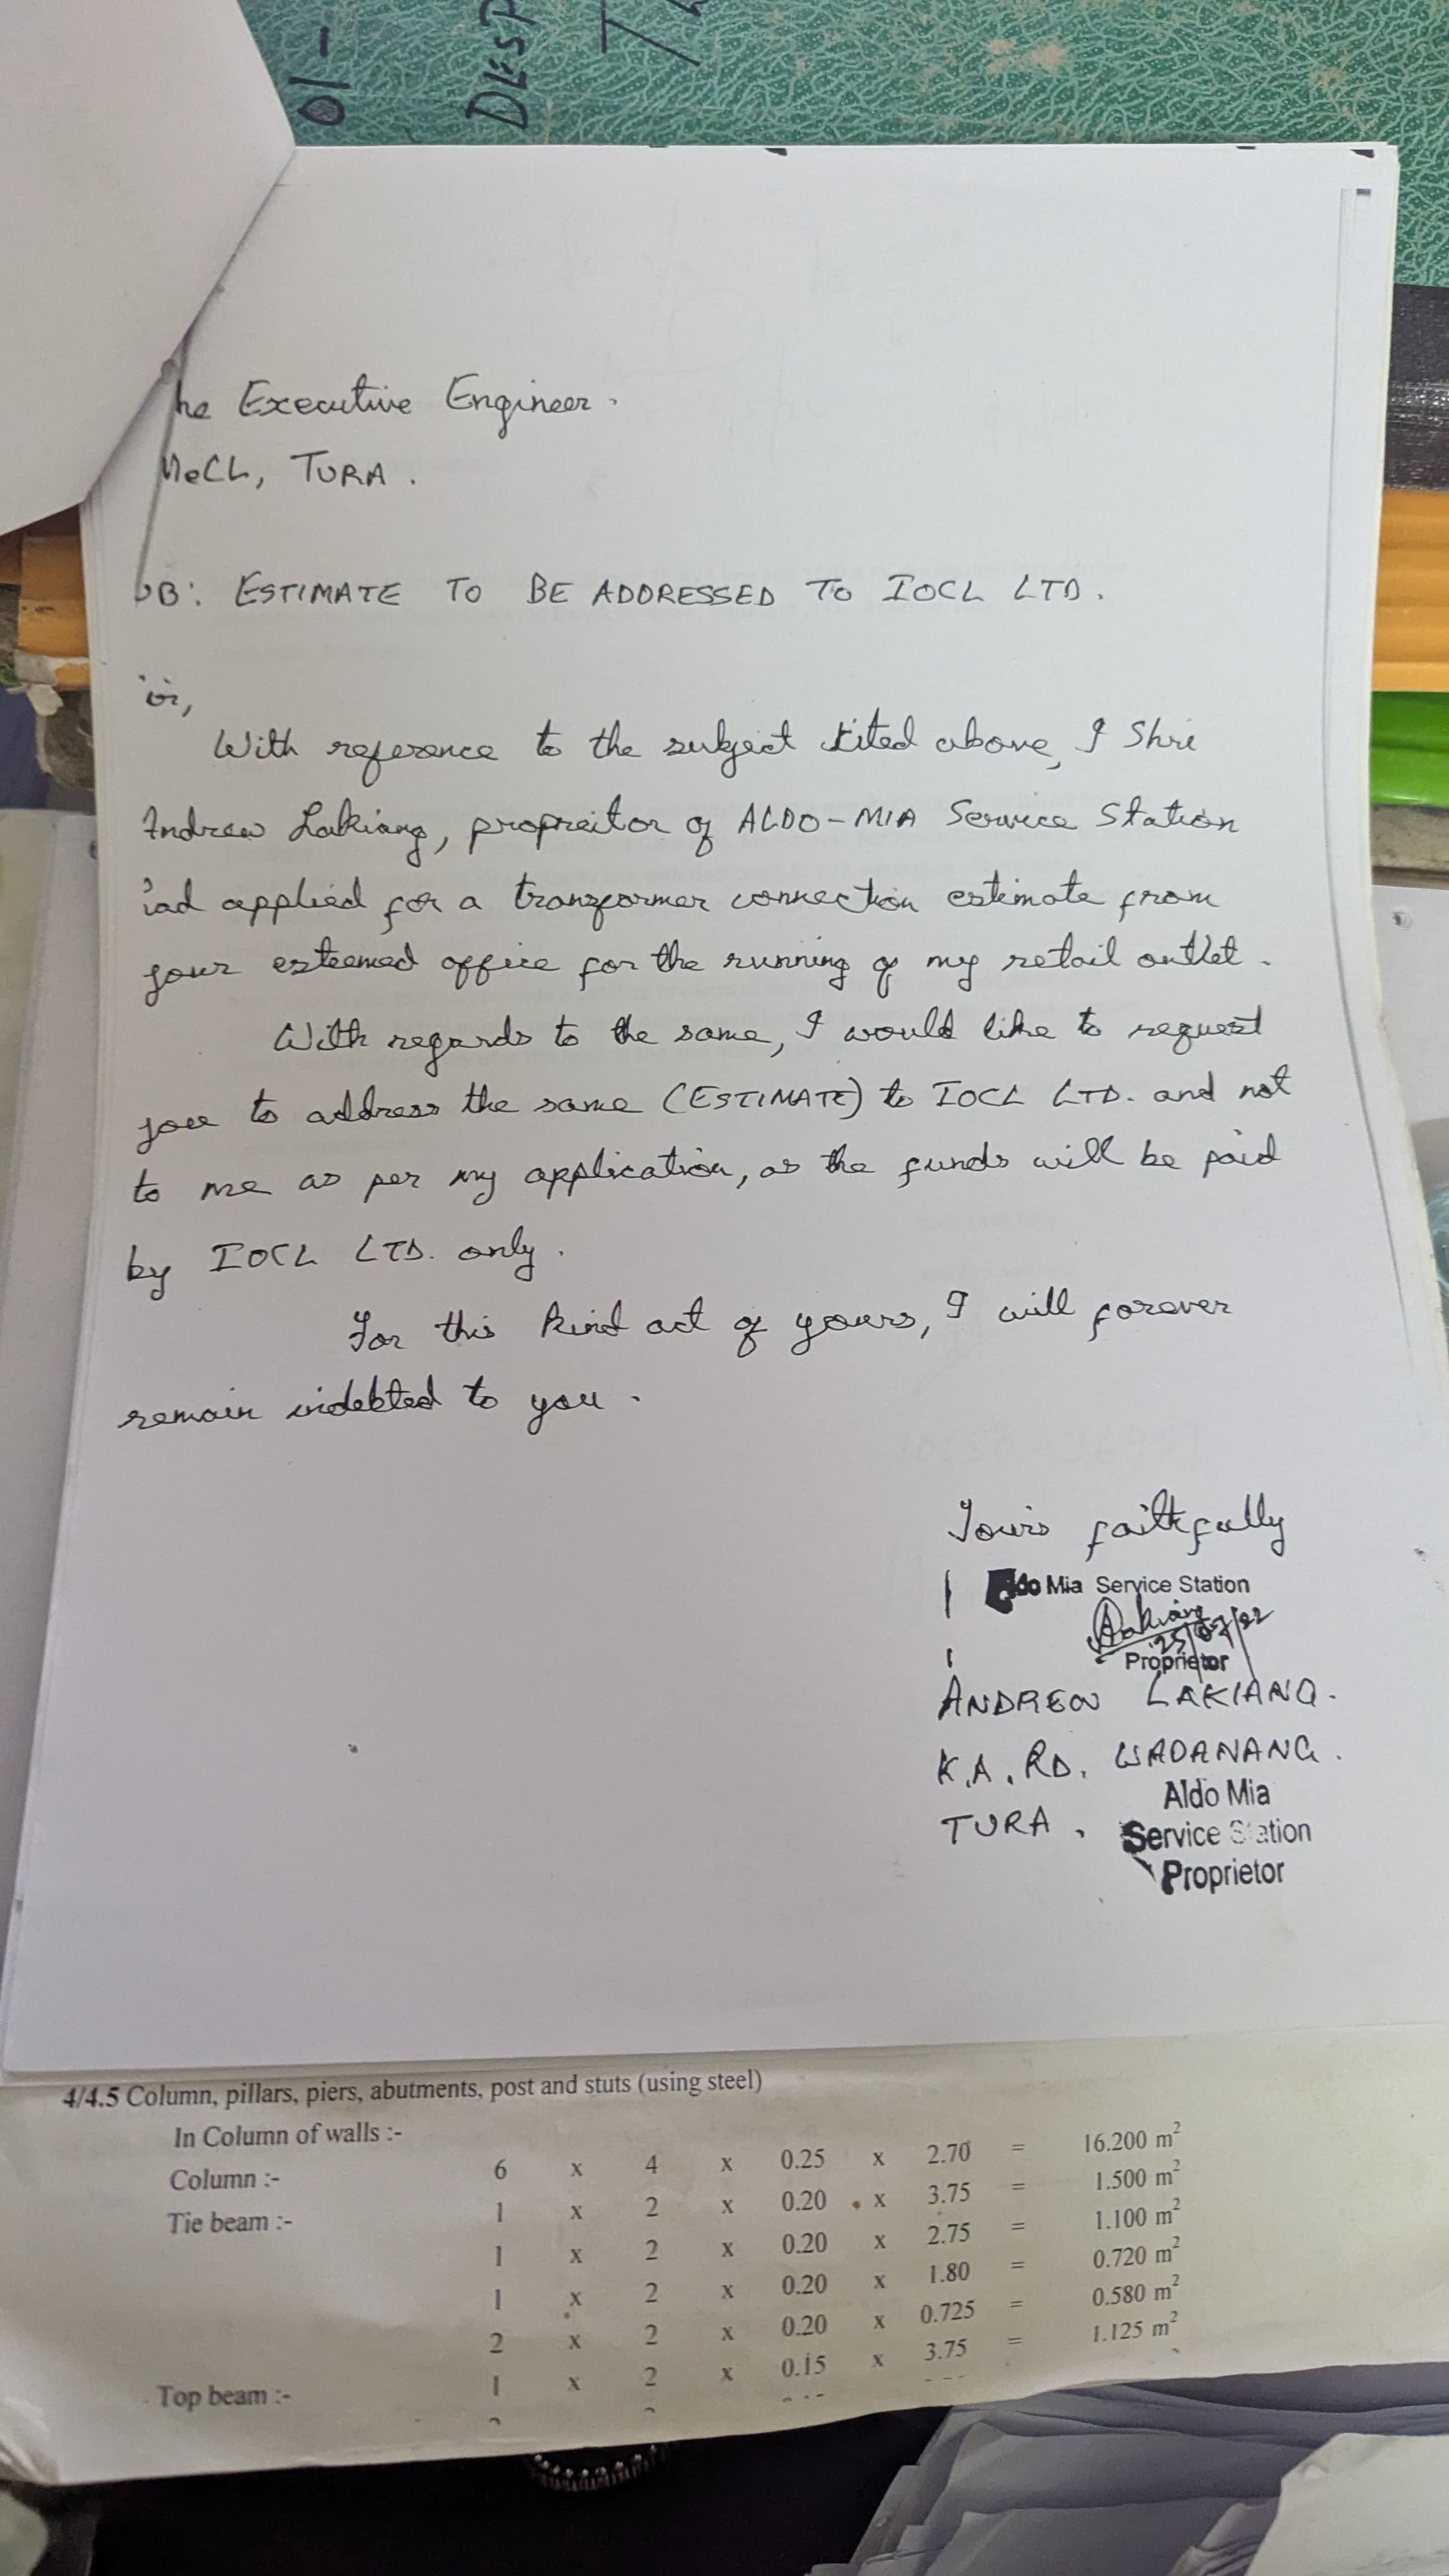 01-
DESP
he Executive Engineer.
MeCL, TURA.
UB: ESTIMATE TO BE ADDRESSED TO IOCL LTD.
ir,
With reference to the subject cited above, I Shri
Andrew Lakiang, propreitor of ALDO-MIA Service Station
had applied for a transformer connection estimate from
your esteemed office for the running of my retail outlet.
With regards to the same, I would like to request
you to address the same (ESTIMATE) to IOCL LTD. and not
to me as per my application, as the funds will be paid
by IOCL LTD. only.
For this kind act of yours, I will forever
remain indebted to you.
Yours faithfully
do Mia Service Station
Lakiang
25/07/22
Proprietor
ANDREW LAKIANG.
K.A. RD. WADANANG.
TURA.
Aldo Mia
Service Station
Proprietor
4/4.5 Column, pillars, piers, abutments, post and stuts (using steel)
In Column of walls :-
Column :- 6 x 4 x 0.25 x 2.70 = 16.200 m²
Tie beam :- 1 x 2 x 0.20 x 3.75 = 1.500 m²
1 x 2 x 0.20 x 2.75 = 1.100 m²
1 x 2 x 0.20 x 1.80 = 0.720 m²
2 x 2 x 0.20 x 0.725 = 0.580 m²
Top beam :- 1 x 2 x 0.15 x 3.75 = 1.125 m²